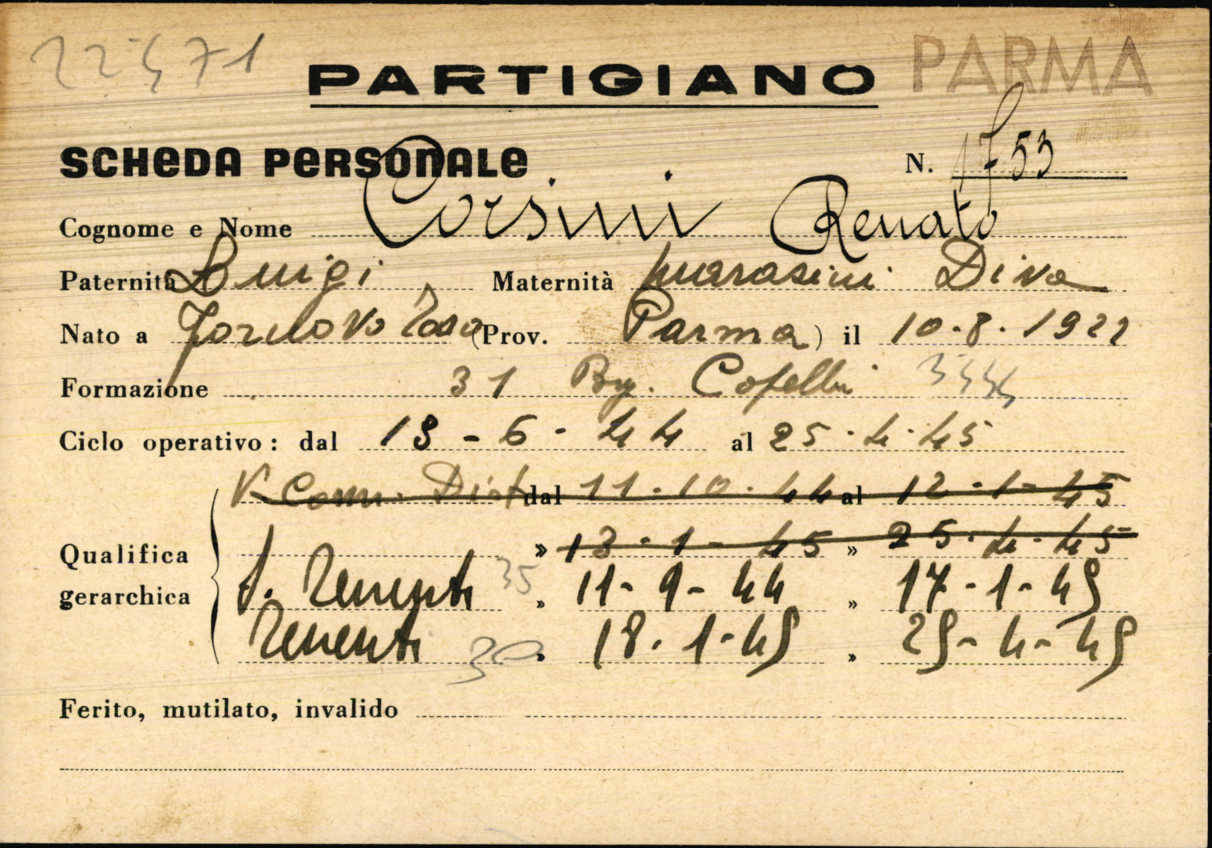 22471
PARTIGIANO PARMA
SCHEDA PERSONALE N. 1753
Cognome e Nome Corsini Renato
Paternità Luigi Maternità Marasini Diva
Nato a Fornovo Taro (Prov. Parma) il 10-8-1922
Formazione 31 Brg. Copelli
Ciclo operativo: dal 13-6-44 al 25-4-45
V. Com. Dist dal 11-10-44 al 12-1-45
» 13-1-45 » 25-4-45
Qualifica gerarchica
S. Tenente 35 » 11-9-44 » 17-1-45
Tenente 30 » 18-1-45 » 25-4-45
Ferito, mutilato, invalido